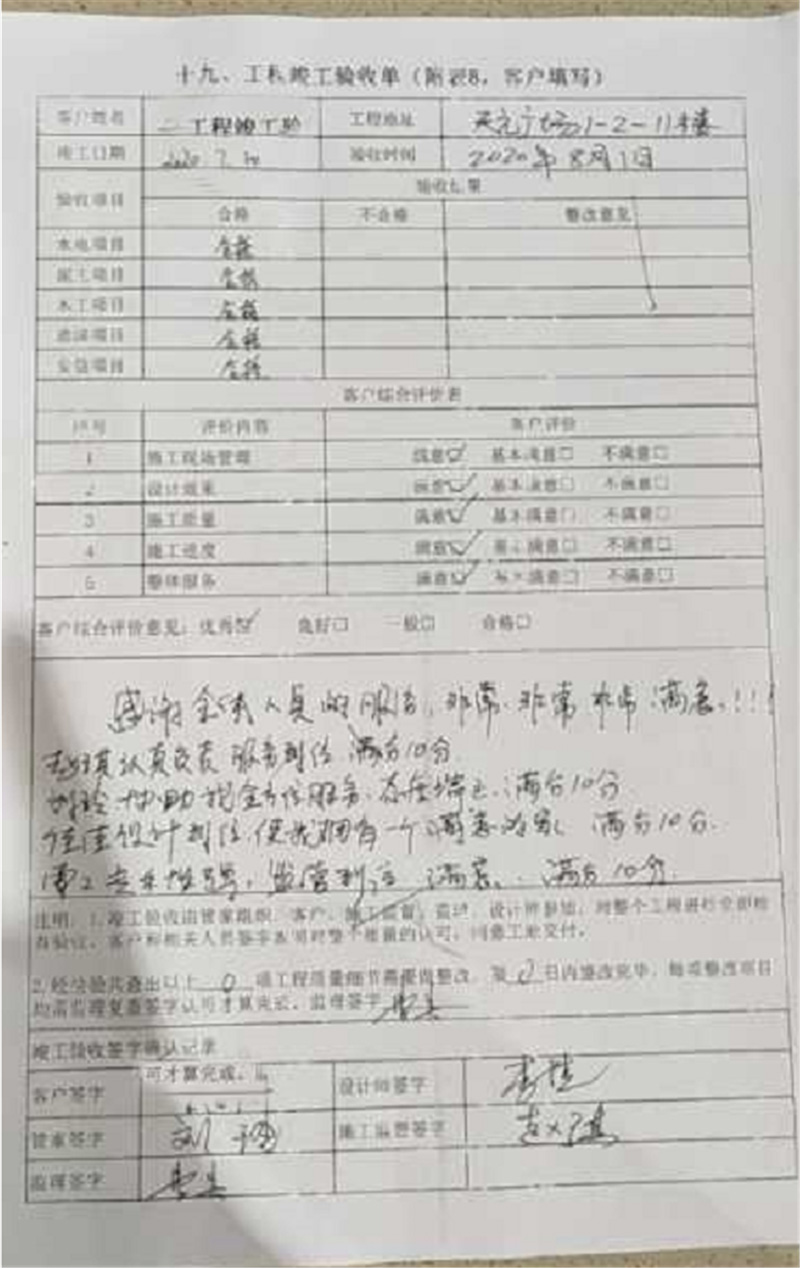 十九、工程竣工验收单（附表8，客户填写）
客户姓名 二工程竣工验 工程地址 天元广场1-2-11楼
竣工日期 2020.7.30 验收时间 2020年8月1日
验收项目 验收结果
合格 不合格 整改意见
水电项目 合格
泥工项目 合格
木工项目 合格
油漆项目 合格
安装项目 合格
客户综合评价表
序号 评价内容 客户评价
1 施工现场管理 满意☑ 基本满意□ 不满意□
2 设计效果 满意☑ 基本满意□ 不满意□
3 施工质量 满意☑ 基本满意□ 不满意□
4 施工进度 满意☑ 基本满意□ 不满意□
5 整体服务 满意☑ 基本满意□ 不满意□
客户综合评价意见：优秀☑ 良好□ 一般□ 合格□
感谢全体人员的服务，非常、非常、非常满意!!!
认真负责 服务到位 满分10分
协助我全方位服务、态度端正、满分10分
设计到位 使我拥有一个满意的家 满分10分.
专业性强，监管到位 满意. 满分10分.
注明：1.竣工验收由管家组织，客户、施工监督、监理、设计师参加，对整个工程进行全面检
查验收，客户和相关人员签字表示对整个质量的认可，同意工程交付。
2.经检验共查出以上 0 项工程质量细节需要尚整改，需 0 日内整改完毕，每项整改项目
均需监理复查签字认可才算完成。监理签字
竣工验收签字确认记录
可才算完成。
客户签字 设计师签字
管家签字 施工监督签字
监理签字